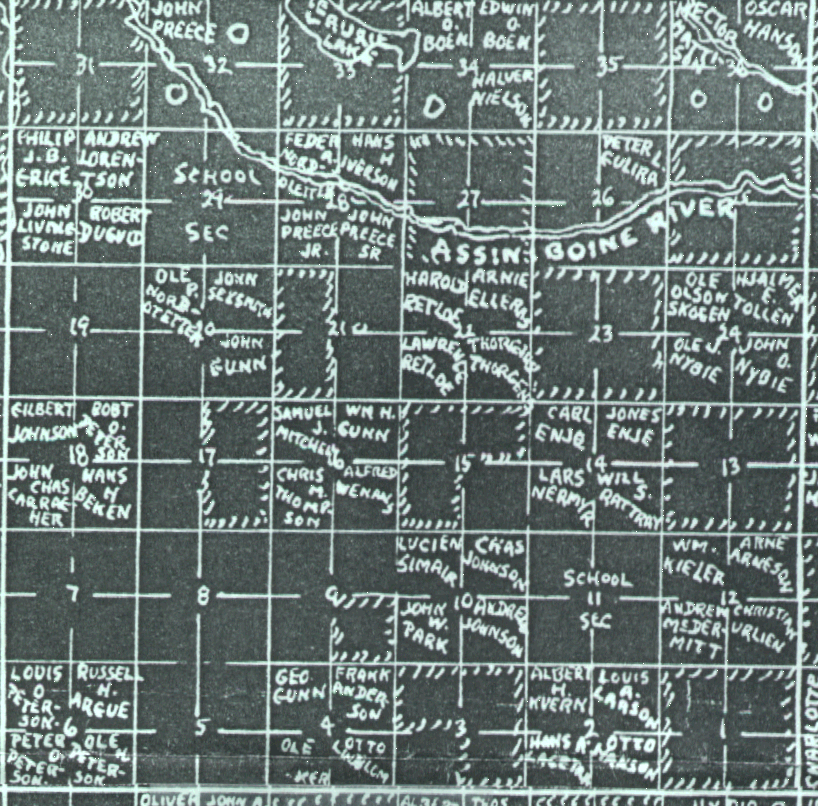 JOHN
PREECE
LAURIE
LAKE
ALBERT
O.
BOEN
EDWIN
O.
BOEN
HECTOR
OSCAR
HANSON
31
32
33
34
35
36
HALVER
NIELSON
PHILIP
J. B.
GRICE
ANDREW
LOREN-
TSON
30
JOHN
LIVING-
STONE
ROBERT
DUGUID
SCHOOL
29
SEC
PEDER
A.
NORD-
HANS
H
IVERSON
28
JOHN
PREECE
JR.
JOHN
PREECE
SR
27
PETER L.
26
ASSINIBOINE RIVER
19
OLE
P.
NORD-
JOHN
SEXSMITH
20
JOHN
GUNN
21
HAROLD
RETLOE
ARNIE
LAWRENCE
RETLOE
23
OLE
OLSON
SKOGEN
HJALMER
E.
TOLLEN
24
OLE J.
NYBIE
JOHN
O.
NYBIE
GILBERT
JOHNSON
ROBT
O.
PETER
SON
18
JOHN
CHAS
CARRAE-
HER
HANS
N
BEKEN
17
SAMUEL
J.
MITCHELL
WM H.
GUNN
CHRIS
M.
THOMP-
SON
ALFRED
WENAUS
15
CARL
ENJE
JONES
ENJE
14
LARS
NERMYR
WILL
S.
RATTRAY
13
7
8
9
LUCIEN
SIMAIR
CHAS
JOHNSON
10
JOHN
W.
PARK
ANDREW
JOHNSON
SCHOOL
11
SEC
WM.
KIELER
ARNE
ARNESON
12
ANDREW
McDER-
MITT
CHRISTIAN
URLIEN
LOUIS
O
PETER-
SON.
RUSSELL
H.
ARGUE
6
PETER
O
PETER-
SON.
OLE H
PETER-
SON
5
GEO.
GUNN
FRANK
ANDER-
SON
4
OLE
LOTTO
3
ALBERT
H.
KVERN
LOUIS
A.
LARSON
2
HANS A.
OTTO
HANSON
1
CHARLOTTE
OLIVER
JOHN A
THOS